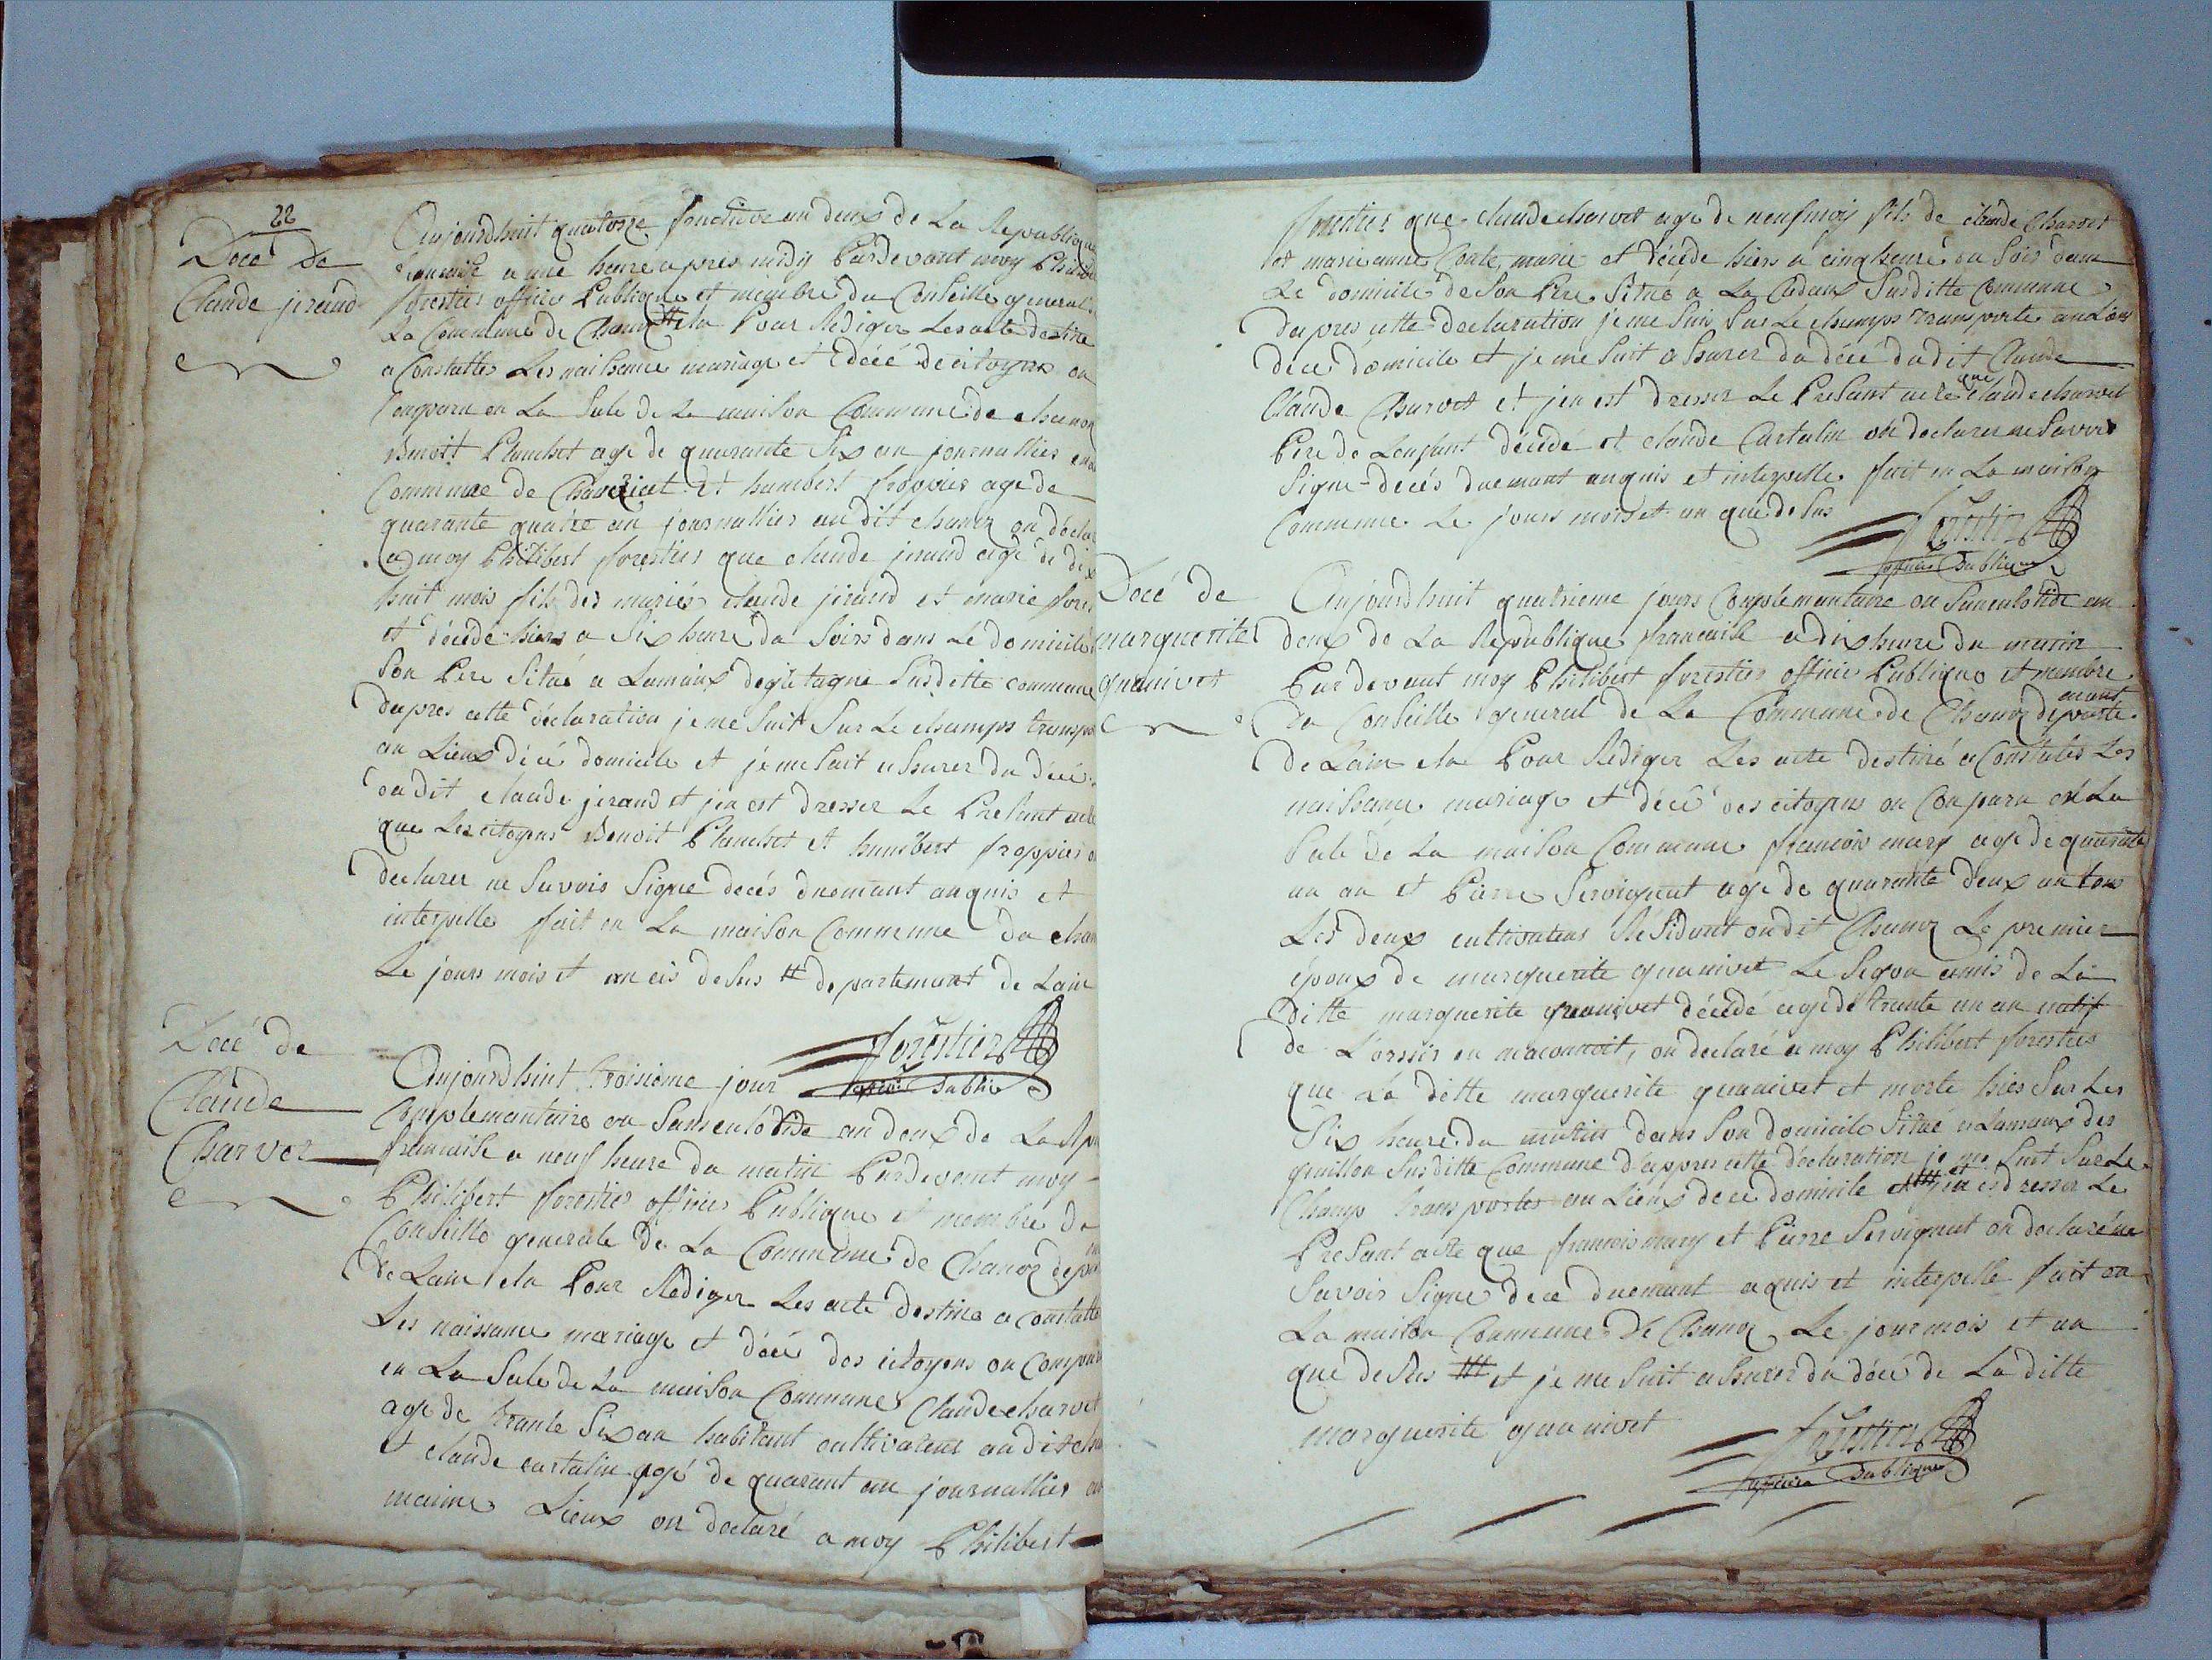 22
Décé de
Claude jiraud
Aujourdhuit quatorze fructidor an deux de La Republique
francaise a une heure apres midy Pardevant moy Philibe
forestier officie Publique et membre du Conseille general
La Commune de Chanoz # elu Pour Rediger Les acte destine
a Constatter Les naissance mariage et Décé de citoyens on
Conparu en La Sale de La maison Commune de chanoz
Benoit Planchet age de quarante Six an journallier
Commune de Et humbert froppier age de
quarante quatre an journallier audit chanoz on déclar
a moy Philibert forestier que claude jiraud agé de dix
huit mois fils des mariés claude jiraud et marie fores
et décédé hiers a Six heure du Soirs dans Le domicile
Son Pere Situé a Lamaux Susditte commune
dapres cette déclaration je me Suit Sur Le champs transpor
au Lieux déce domicile et je me Suit assurer du décé
dudit claude jiraud et jen est dresser Le Present acte
que Les citoyens Benoit Planchet et humbert froppier o
declarer ne Savoir Signe decés duemant anquis et
interpelle fait en La maison Commune du chan
Le jours mois et an cis desus # departemant de Lain
forestier
officié Public
Décé de
Claude
Charvet
Aujourdhuit troisieme jour
Complemantaire ou Sanculotide an deux de La Rpu
francaise a neuf heure du matin Pardevant moy
Philibert forestier officier Publique et membre du
Conseille generale de La Commune de Chanoz depar
de Lain elu Pour Rediger Les acte destine a constatter
Les naissance mariage et décé des citoyens on Comparu
en La Sale de La maison Commune Claude charvet
age de trante Six an habitant cultivateur audit cha
et claude curtalin agé de quarant an journallier au
maime Lieux on declaré a moy Philibert
forestier que claude charvet age de neuf moy fils de claude Charvet
et marie anne Conte, marie et décédé hiers a cinq heure du Soir dans
Le domicile de Son Pere Situé a La Cadoux Susditte Commune
dapres cette declaration je me Suis Sur Le champs transporte au Lieux
déce domicile et je me Suit assurer du décé dudit Claude
Claude Charvet et jen est dresser Le Present acte que claude charvet
Pere de Lenfant décédé et claude Curtalin on declarer ne Savoir
Signe decés duemant anquis et interpelle fait en La maison
Commune Le jours mois et an que desus
forestier
officier Publique
Décé de
marguerite
quanivet
Aujourdhuit quatrieme jours Complemantaire ou Sanculotide an
deux de La Republique francaise a dix heure du matin
Par devant moy Philibert forestier officier Publique et membre
du Conseille general de La Commune de Chanoz departe
mant
de Lain elu Pour Rediger Les acte destiné a Constater Les
naissance mariage et décé des citoyens on Conparu en La
Sale de La maison Commune francois mary age de quarante
un an et Pierre Servignat age de quarante deux an tous
Les deux cultivateur Residant audit Chanoz Le premier
époux de marguerite quanivet Le Segon amis de La
ditte marguerite quanivet décédé agé de trante un an natif
de L'orssis en maconnoit, on declaré a moy Philibert forestier
que La ditte marguerite quanivet et morte hier Sur Les
Six heure du matin dans Son domicile Situé a Lamaux des
guillon Susditte Commune d'appres cette declaration je me Suit Sur Le
Champ transporter au Lieux de ce domicile et ### jen est dresser Le
Present acte que francois mary et Pierre Servignat on declaré ne
Savoir Signe dece duemant aquis et interpelle fait en
La maison Commune de Chanoz Le jour mois et an
que desus ### et je me Suit assurer du décé de La ditte
marguerite quanivet
forestier
officier Publique